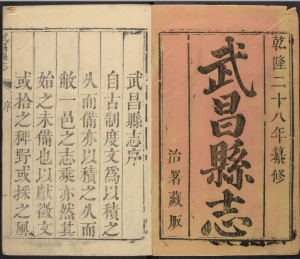 乾隆二十八年纂修
武昌縣志
治署藏版
武昌縣志序
自古制度文爲以積之
久而備亦以積之久而
敝一邑之志乘亦然其
始之未備也以獻徵文
或拾之稗野或採之風
武昌縣志
序